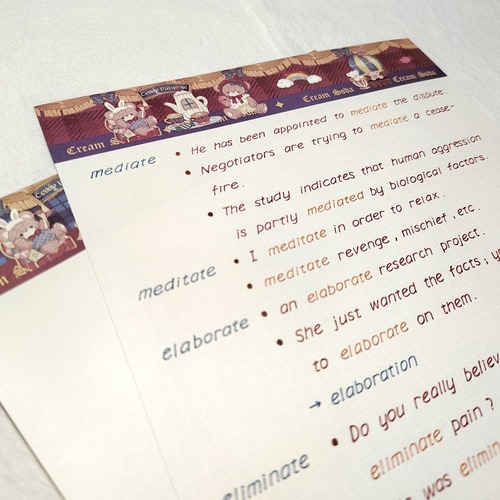 Candy Paradise
Cream Soda
Cream Soda
mediate
• He has been appointed to mediate the dispute
• Negotiators are trying to mediate a cease-
fire.
• The study indicates that human aggression
is partly mediated by biological factors.
meditate
• I meditate in order to relax.
• meditate revenge, mischief, etc.
elaborate
• an elaborate research project.
• She just wanted the facts;
to elaborate on them.
→ elaboration
eliminate
• Do you really
eliminate pain?
was